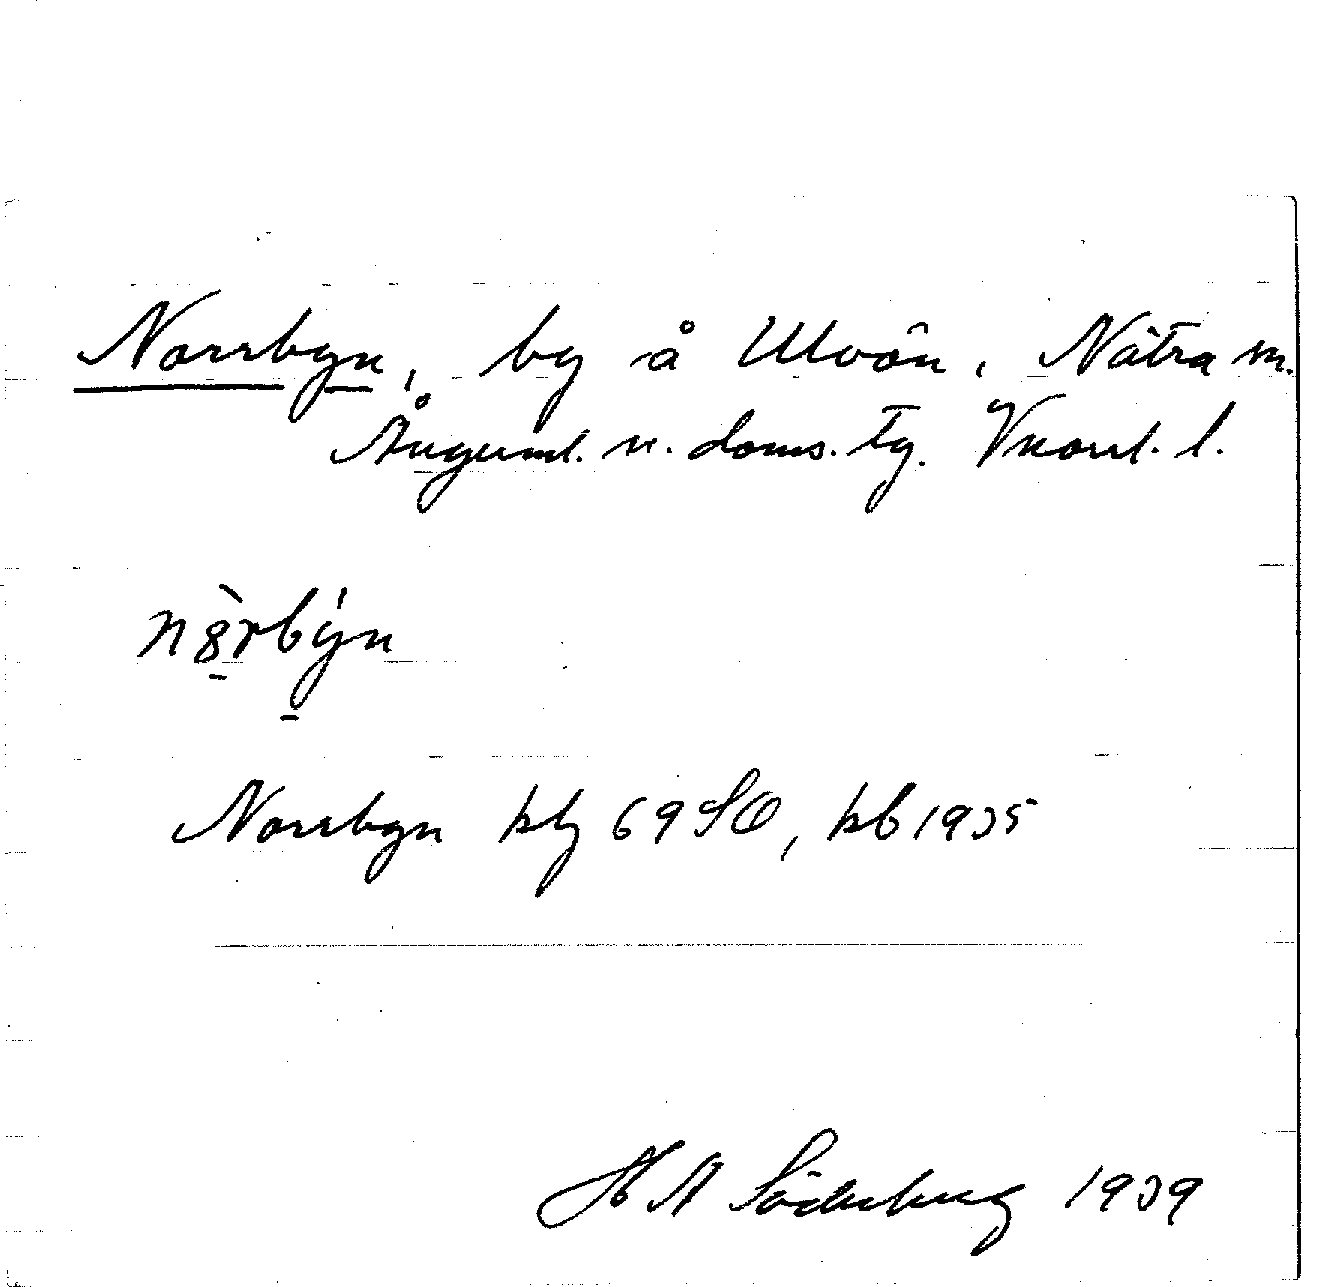 Norrbyn, by å Ulvön, Nätra sn.
Ångerml. n. doms. tg. Vnorrl. l.
nȣ̀rbýn
Norrbyn kbg 69 SO, kb 1935
H A Söderberg 1939